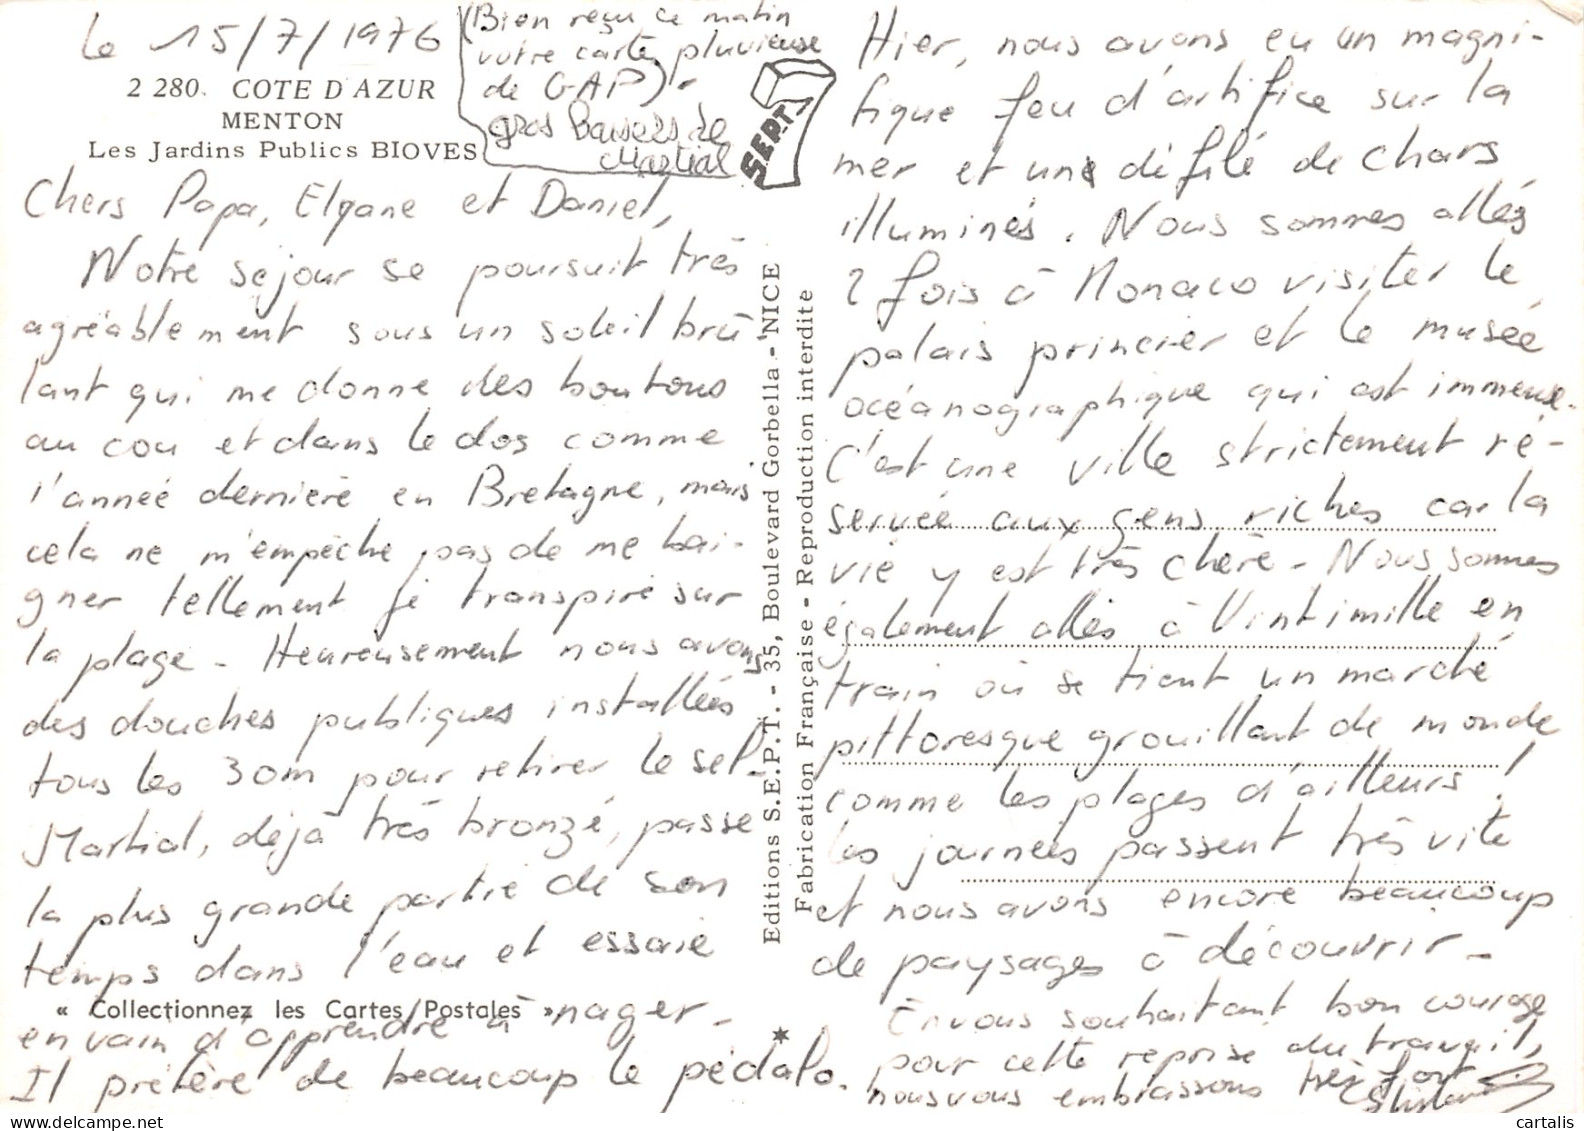 le 15/7/1976
2 280. COTE D'AZUR
MENTON
Les Jardins Publics BIOVES
(Bien reçu ce matin
votre carte pluvieuse
de GAP).
gros Baisers de
Martial
SEPT
Chers Papa, Elyane et Daniel,
Notre séjour se poursuit très
agréablement sous un soleil brû
lant qui me donne des boutons
au cou et dans le dos comme
l'année dernière en Bretagne, mais
cela ne m'empêche pas de me bai-
gner tellement je transpire sur
la plage - Heureusement nous avons
des douches publiques installées
tous les 30m pour retirer le sel -
Martial, déjà très bronzé, passe
la plus grande partie de son
temps dans l'eau et essaie
« Collectionnez les Cartes Postales »
en vain d'apprendre à nager -
Il préfère de beaucoup le pédalo.
Editions S.E.P.T. - 35, Boulevard Gorbella - NICE
Fabrication Française - Reproduction interdite
Hier, nous avons eu un magni-
fique feu d'artifice sur la
mer et un défilé de chars
illuminés. Nous sommes allés
2 fois à Monaco visiter le
palais princier et le musée
océanographique qui est immense.
C'est une ville strictement ré-
servée aux gens riches car la
vie y est très chère - Nous sommes
également allés à Vintimille en
train où se tient un marché
pittoresque grouillant de monde
comme les plages d'ailleurs !
Les journées passent très vite
et nous avons encore beaucoup
de paysages à découvrir -
En vous souhaitant bon courage
pour cette reprise du travail,
nous vous embrassons très fort